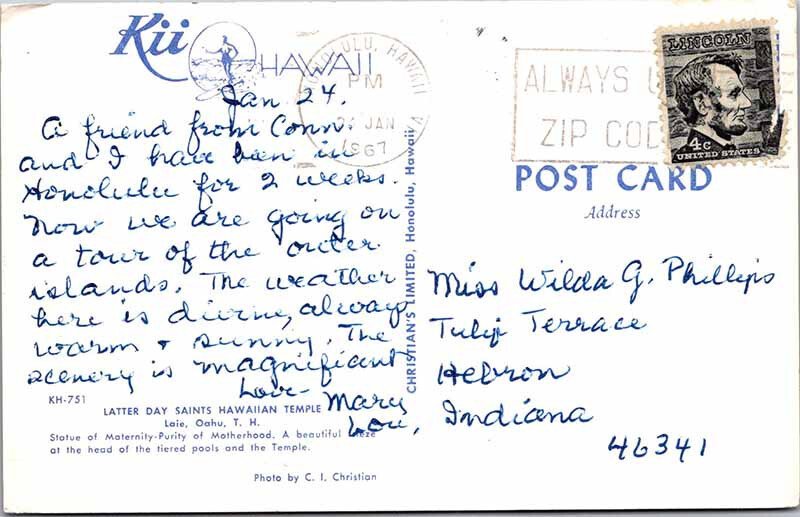 Kii
HAWAII
HONOLULU, HAWAII
PM
24 JAN
1967
ALWAYS U
ZIP COD
LINCOLN
4c
UNITED STATES
Jan 24.
A friend from Conn.
and I have been in
Honolulu for 2 weeks.
Now we are going on
a tour of the outer
islands. The weather
here is divine, always
warm + sunny. The
scenery is magnificant
Love-
Mary
Lou,
KH-751
LATTER DAY SAINTS HAWAIIAN TEMPLE
Laie, Oahu, T. H.
Statue of Maternity-Purity of Motherhood. A beautiful
at the head of the tiered pools and the Temple.
Photo by C. I. Christian
CHRISTIAN'S LIMITED, Honolulu, Hawaii
POST CARD
Address
Miss Wilda G. Phillips
Tulip Terrace
Hebron
Indiana
46341